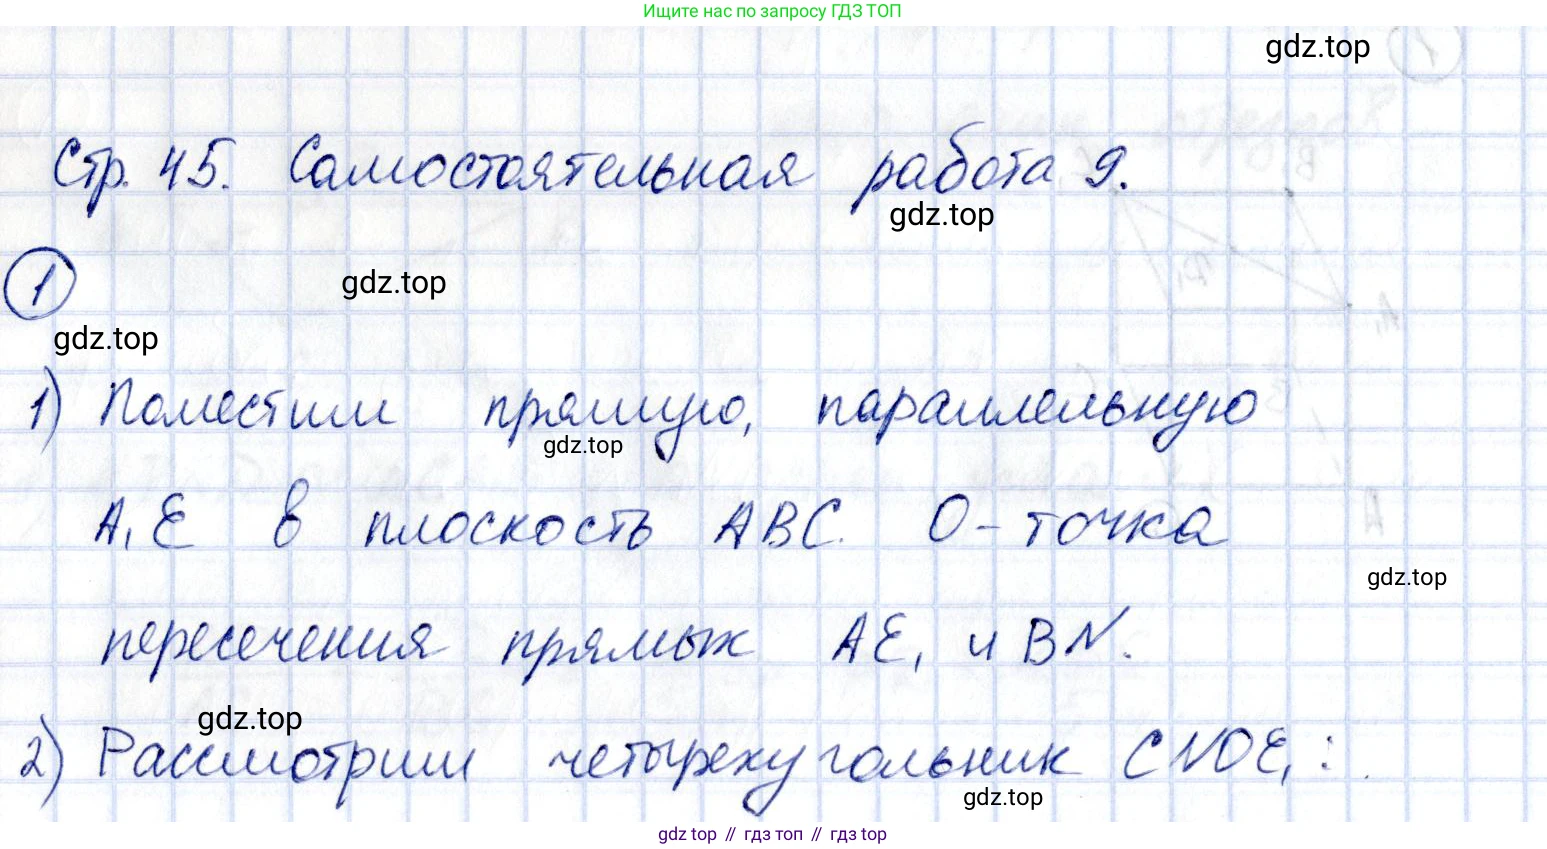 Ищите нас по запросу ГДЗ ТОП
gdz.top
Стр. 45. Самостоятельная работа 9.
gdz.top
1
gdz.top
gdz.top
1) Поместим прямую, параллельную
gdz.top
A₁E в плоскость ABC. O - точка
gdz.top
пересечения прямых AE₁ и BN.
gdz.top
2) Рассмотрим четырехугольник CNOE₁:
gdz.top
gdz top // гдз топ // гдз top